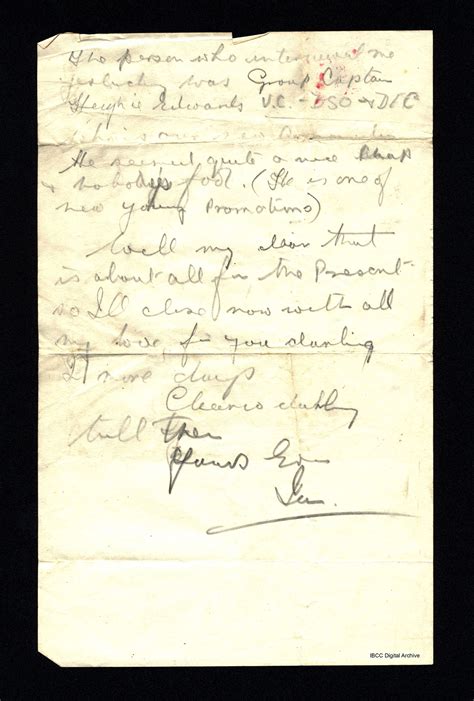 The person who interviewed me
yesterday was Group Captain
Heighie Edwards V.C. - DSO + DFC
who is our new Commander
He seemed quite a nice chap
+ nobody's fool. (He is one of
new young Promotions)
Well my dear that
is about all for the Present
so I'll close now with all
my love for you darling
21 more days
Cheerio darling
till then
Yours Ever
IBCC Digital Archive